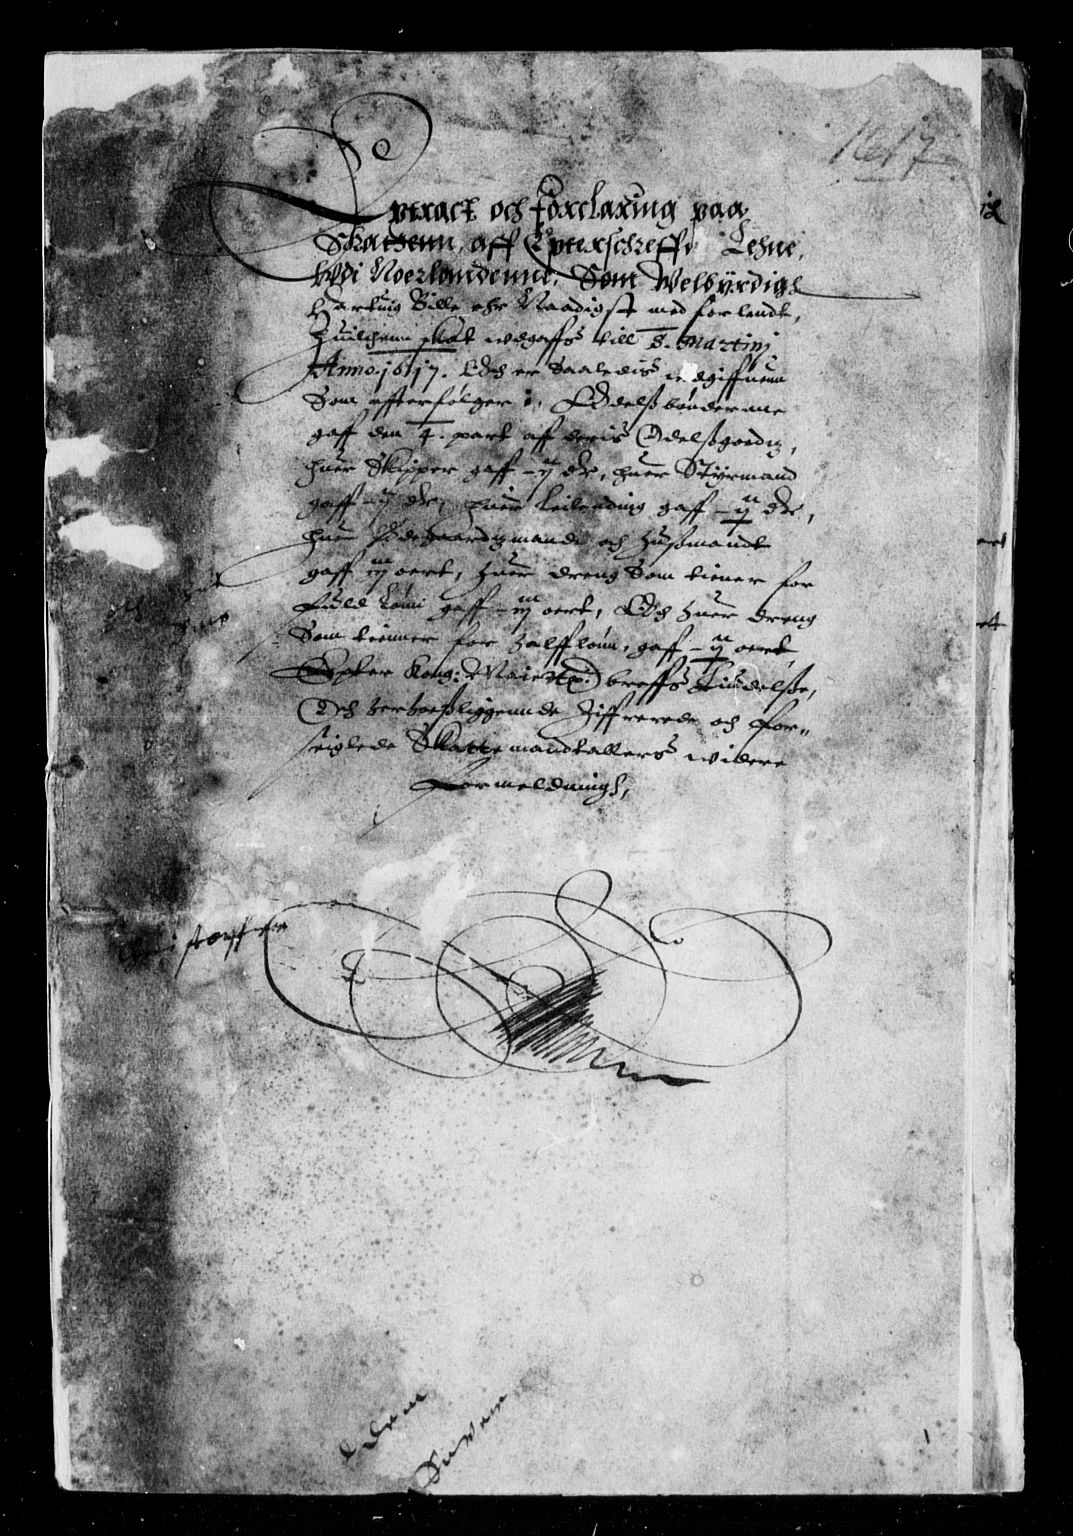 1617
Extract och forclaring paa
Skatzenn, aff Epterschreffne Lehne,
Udi Noerlandenne, Som Welbÿrdig
Hartuig Bille ehr Naadigst med forlendt,
Huilchenn skat udgaffs till S. Martinj
Anno. 1617. Och er Saaledis udgiffuenn
Som efterfølger :, Odelsbønderne
gaff den 4. part aff deris Odelsgoedtz,
huer Skipper gaff – ij dr, huer Stÿrmand
gaff – ij dr, huer Leilending gaff – ij dr,
huer Ødegaardtzmand och Hussmandt
gaff iij oert, huer dreng Som tiener for
Fuld Lønn gaff – iij oert, Och huer dreng
Som tienner for halff lønn, gaff – ij oert,
Epter Kong: Maietz: breffs Liudelsse,
Och herhosliggennde Ziffrerede och for-
seiglede Skattemandtallers widere
Formeldning,